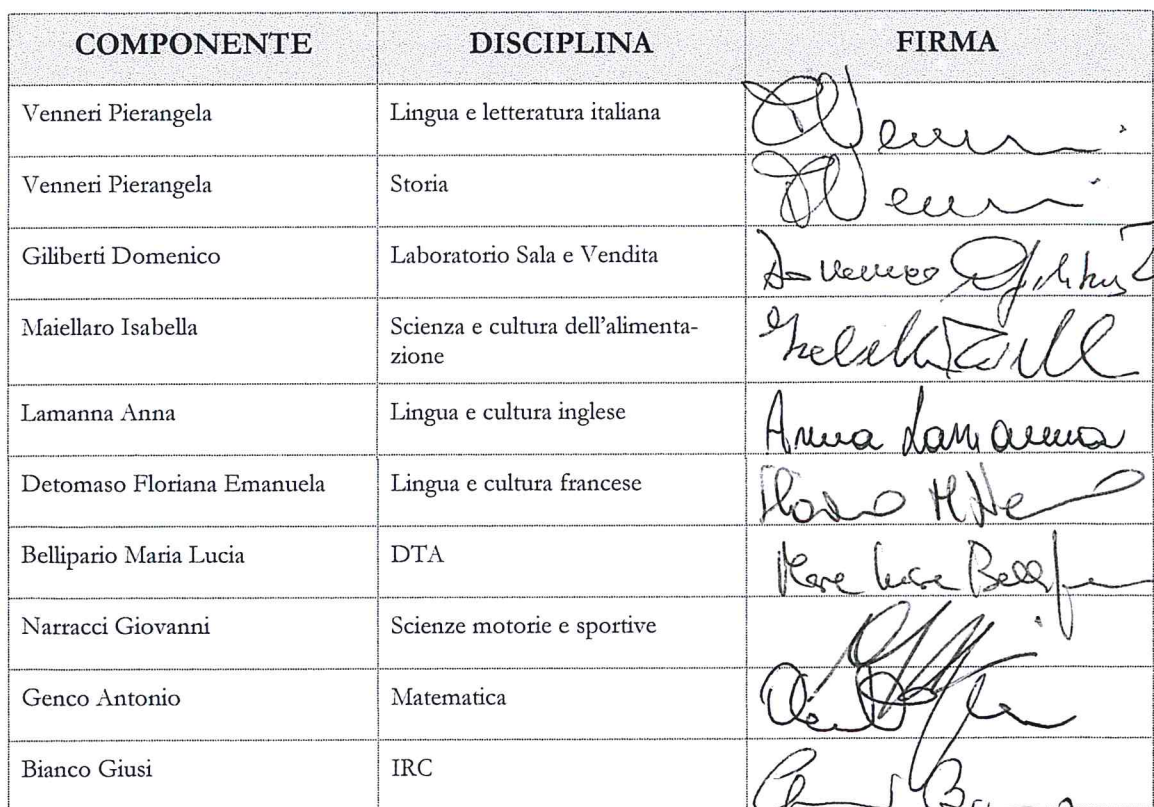 COMPONENTE DISCIPLINA FIRMA
Venneri Pierangela Lingua e letteratura italiana
Venneri Pierangela Storia
Giliberti Domenico Laboratorio Sala e Vendita Domenico
Maiellaro Isabella Scienza e cultura dell'alimenta-
zione
Lamanna Anna Lingua e cultura inglese Anna Lamanna
Detomaso Floriana Emanuela Lingua e cultura francese
Bellipario Maria Lucia DTA
Narracci Giovanni Scienze motorie e sportive
Genco Antonio Matematica
Bianco Giusi IRC